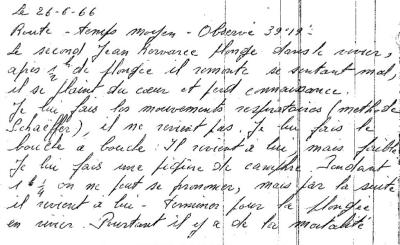 Le 26-6-66
Route - temps moyen - Observé 39°19':
Le second Jean Kervarec plonge dans le vivier,
après 1h 1/2 de plongée il remonte se sentant mal,
il se plaint du cœur et perd connaissance.
Je lui fais les mouvements respiratoires (méthode
Schaeffer), il ne revient pas. Je lui fais le
bouche à bouche: Il revient à lui, mais faible
Je lui fais une piqûre de camphre. Pendant
1h 1/2 on ne peut se prononcer, mais par la suite
il revient à lui - Terminer pour la plongée
en vivier - Pourtant il y a de la mortalité